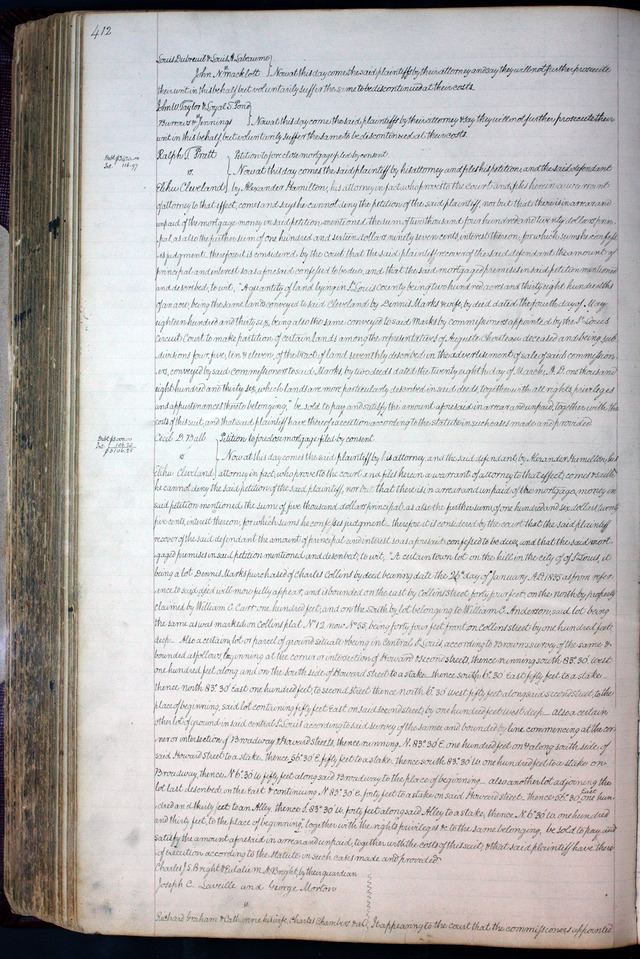 412
Louis Dubreuil & Louis A Labeaume
John N. Macklott } Now at this day come the said plaintiffs by their attorney and say they will not further prosecute
their writ in this behalf but voluntarily suffer the same to be discontinued at their costs.
John W Taylor & Loyal S. Pond
Burrows & Jennings } Now at this day come the said plaintiffs by their attorney & say they will not further prosecute their
writ in this behalf but voluntarily suffer the same to be discontinued at their costs.
Ralph T. Pratt } Petition to foreclose mortgage filed by consent
vs. } Now at this day comes the said plaintiff by his attorney and files his petition; and the said defendant
Elihu Cleveland } by Alexander Hamilton, his attorney in fact, who proves to the court and files herein a warrant
of attorney to that effect, comes and says he cannot deny the petition of the said plaintiff, nor but that there is in arrear and
unpaid of the mortgage money in said petition mentioned the sum of two thousand four hundred and twenty dollars prin-
cipal, as also the further sum of one hundred and sixteen dollars ninety seven cents, interest thereon, for which sums he confess-
es judgment. therefore it is considered by the Court that the said plaintiff recover of the said defendant the amount of
principal and interest so as aforesaid confessed to be due, and that the said mortgaged premises in said petition mentioned
and described, to wit, "A quantity of land lying in St Louis County being two hundred acres and thirty eight hundredths
of an acre being the same lands conveyed to said Cleveland by Dennis Marks & wife, by deed dated the fourth day of May
eighteen hundred and thirty six, being also the same conveyed to said Marks by commissioners appointed by the St Louis
Circuit Court to make partition of certain lands among the representatives of Auguste Chouteau deceased and being sub
divisions four, five, ten & eleven, of the tract of land seventhly described in the advertisement of sale of said commission-
ers, conveyed by said commissioners to said Marks, by two deeds dated the twenty eighth day of March, A.D. one thousand
eight hundred and thirty six, which lands are more particularly described in said deeds, together with all rights, privileges
and appurtenances thereto belonging," be sold to pay and satisfy the amount aforesaid in arrear and unpaid, together with the
costs of this suit, and that said plaintiff have thereof execution according to the statute in such cases made and provided
Cecil D. Ball } Petition to foreclose mortgage filed by consent
vs } Now at this day comes the said plaintiff by his attorney, and the said defendant by Alexander Hamilton, his
Elihu Cleveland } attorney in fact, who proves to the court and files herein a warrant of attorney to that effect, comes & saith
he cannot deny the said petition of the said plaintiff, nor but that there is in arrear and unpaid of the mortgage, money in
said petition mentioned, the sum of five thousand dollars principal, as also the further sum of one hundred and six dollars twenty
five cents, interest thereon, for which sums he confesses judgment. therefore it is considered by the court that the said plaintiff
recover of the said defendant the amount of principal and interest so as aforesaid confessed to be due, and that the said mort-
gaged premises in said petition mentioned and described, to wit, "A certain town lot on the hill in the city of of St Louis, it
being a lot Dennis Marks purchased of Charles Collins by deed bearing date the 26th day of January A.D. 1835 as from refer-
ence to said deed will more fully appear, and is bounded on the east by Collins Street, forty four feet, on the north by property
claimed by William C. Carr one hundred feet, and on the South by lot belonging to William C. Anderson, said lot being
the same as was marked on Collins plat. No 12. now No 58, being forty four feet front on Collins street by one hundred feet
deep. Also a certain lot or parcel of ground situate & being in Central St Louis, according to Brown's survey of the same &
bounded as follows, beginning at the corner or intersection of Howard & second streets, thence running south 83°.30' west
one hundred feet along and on the south side of Howard street to a stake. thence south 6°.30' East fifty feet to a stake
thence north 83°.30' East one hundred feet, to second street thence north 6°.30' west fifty feet along said second street, to the
place of beginning, said lot containing fifty feet East on said second street; by one hundred feet west deep. also a certain
other lot of ground in said central St Louis according to said survey of the same and bounded by line commencing at the cor-
ner or intersection of Broadway & Howard streets, thence running N. 83°.30' E. one hundred feet on & along south side of
said Howard street to a stake, thence S 6°.30' E. fifty feet to a stake. thence south 83°.30' W. one hundred feet to a stake on
Broadway, thence N. 6°.30' W. fifty feet along said Broadway to the place of beginning. also another lot adjoining the
lot last described on the East & continuing N. 83°.30' E. forty feet to a stake on said Howard street. thence S 6°.30' East one hun-
dred and thirty feet to an Alley. thence S. 83°.30' W. forty feet along said Alley to a stake, thence N. 6°.30' W. one hundred
and thirty feet, to the place of beginning", together with the rights privileges & to the same belonging, be sold to pay and
satisfy the amount aforesaid in arrear and unpaid, together with the costs of this suit, & that said plaintiff have there-
of execution according to the statute in such case made and provided
Charles J. S. Bright & Eulalie M. A. Bright by their guardian
Joseph C. Laveille and George Morton
vs
Richard Graham & Catherine his wife, Charles Chambers & al. } It appearing to the court that the commissioners appointed